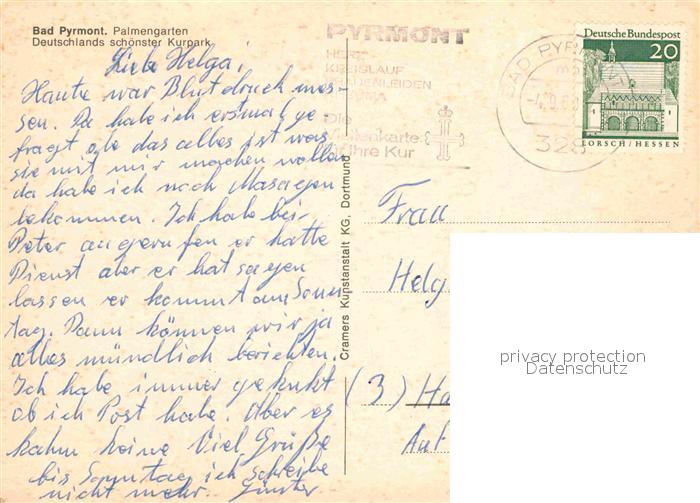 Bad Pyrmont. Palmengarten
Deutschlands schönster Kurpark
Liebe Helga,
Haute war Blutdruck mes-
sen. Da habe ich erstmal ge-
fragt ob das alles ist was
sie mit mir machen wollen
da habe ich noch Masagen
bekommen. Ich habe bei
Peter angerufen er hatte
Dienst aber er hat sagen
lassen er kommt am Sonn
tag. Dann können wir ja
alles mündlich berichten.
Ich habe immer gekukt
ob ich Post habe. Aber es
kahm keine Viel Grüße
bis Sonntag ich schreibe
nicht mehr. Günter
Cramers Kunstanstalt KG, Dortmund
PYRMONT
HERZ
KREISLAUF
FRAUENLEIDEN
Die
Visitenkarte
für Ihre Kur
BAD PYRMONT
328
Deutsche Bundespost
20
LORSCH/HESSEN
Frau
Helg
(3) Ha
Auf
privacy protection
Datenschutz